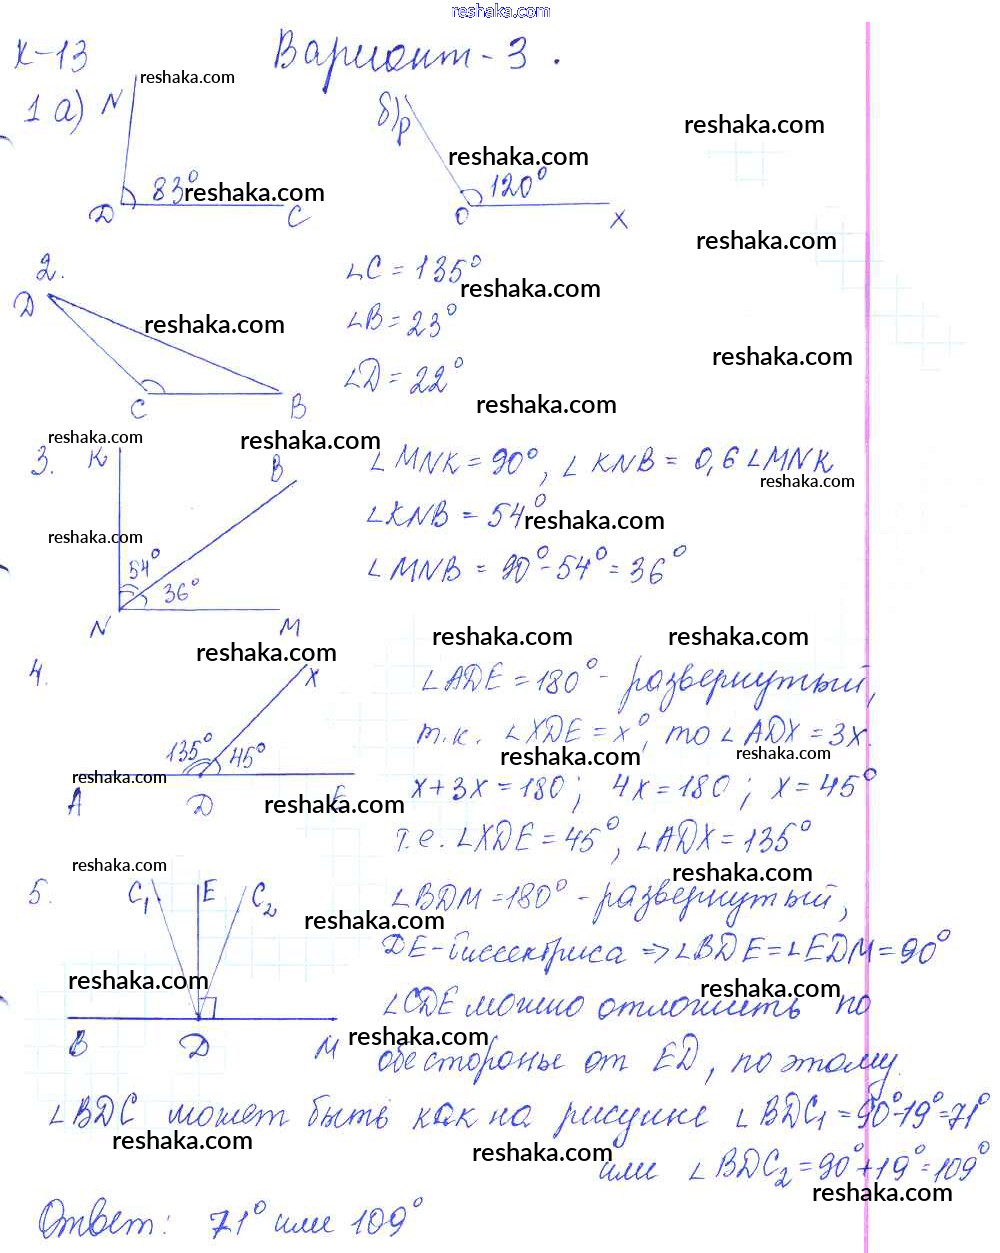 reshaka.com
К-13 Вариант-3.
reshaka.com
1 а) N
б) P
reshaka.com
reshaka.com
83°
reshaka.com
120°
D C
O X
reshaka.com
2.
D
∠C = 135°
reshaka.com
reshaka.com
∠B = 23°
reshaka.com
∠D = 22°
reshaka.com
C B
reshaka.com
reshaka.com
3. K
B
∠MNK = 90°, ∠KNB = 0,6 ∠MNK
reshaka.com
∠KNB = 54°
reshaka.com
reshaka.com
54°
36°
∠MNB = 90° - 54° = 36°
N M
reshaka.com
reshaka.com
reshaka.com
4.
X
∠ADE = 180° - развернутый,
т.к. ∠XDE = x°, то ∠ADX = 3x.
135° 45°
reshaka.com
reshaka.com
reshaka.com
A D E
reshaka.com
x + 3x = 180; 4x = 180; x = 45°
т.е. ∠XDE = 45°, ∠ADX = 135°
reshaka.com
reshaka.com
5.
C₁ E C₂
∠BDM = 180° - развернутый,
reshaka.com
DE - биссектриса ⇒ ∠BDE = ∠EDM = 90°
reshaka.com
reshaka.com
∠CDE можно отложить по
B D M
reshaka.com
обе стороны от ED, поэтому
∠BDC может быть как на рисунке ∠BDC₁ = 90° - 19° = 71°
reshaka.com
reshaka.com
или ∠BDC₂ = 90° + 19° = 109°
reshaka.com
Ответ: 71° или 109°